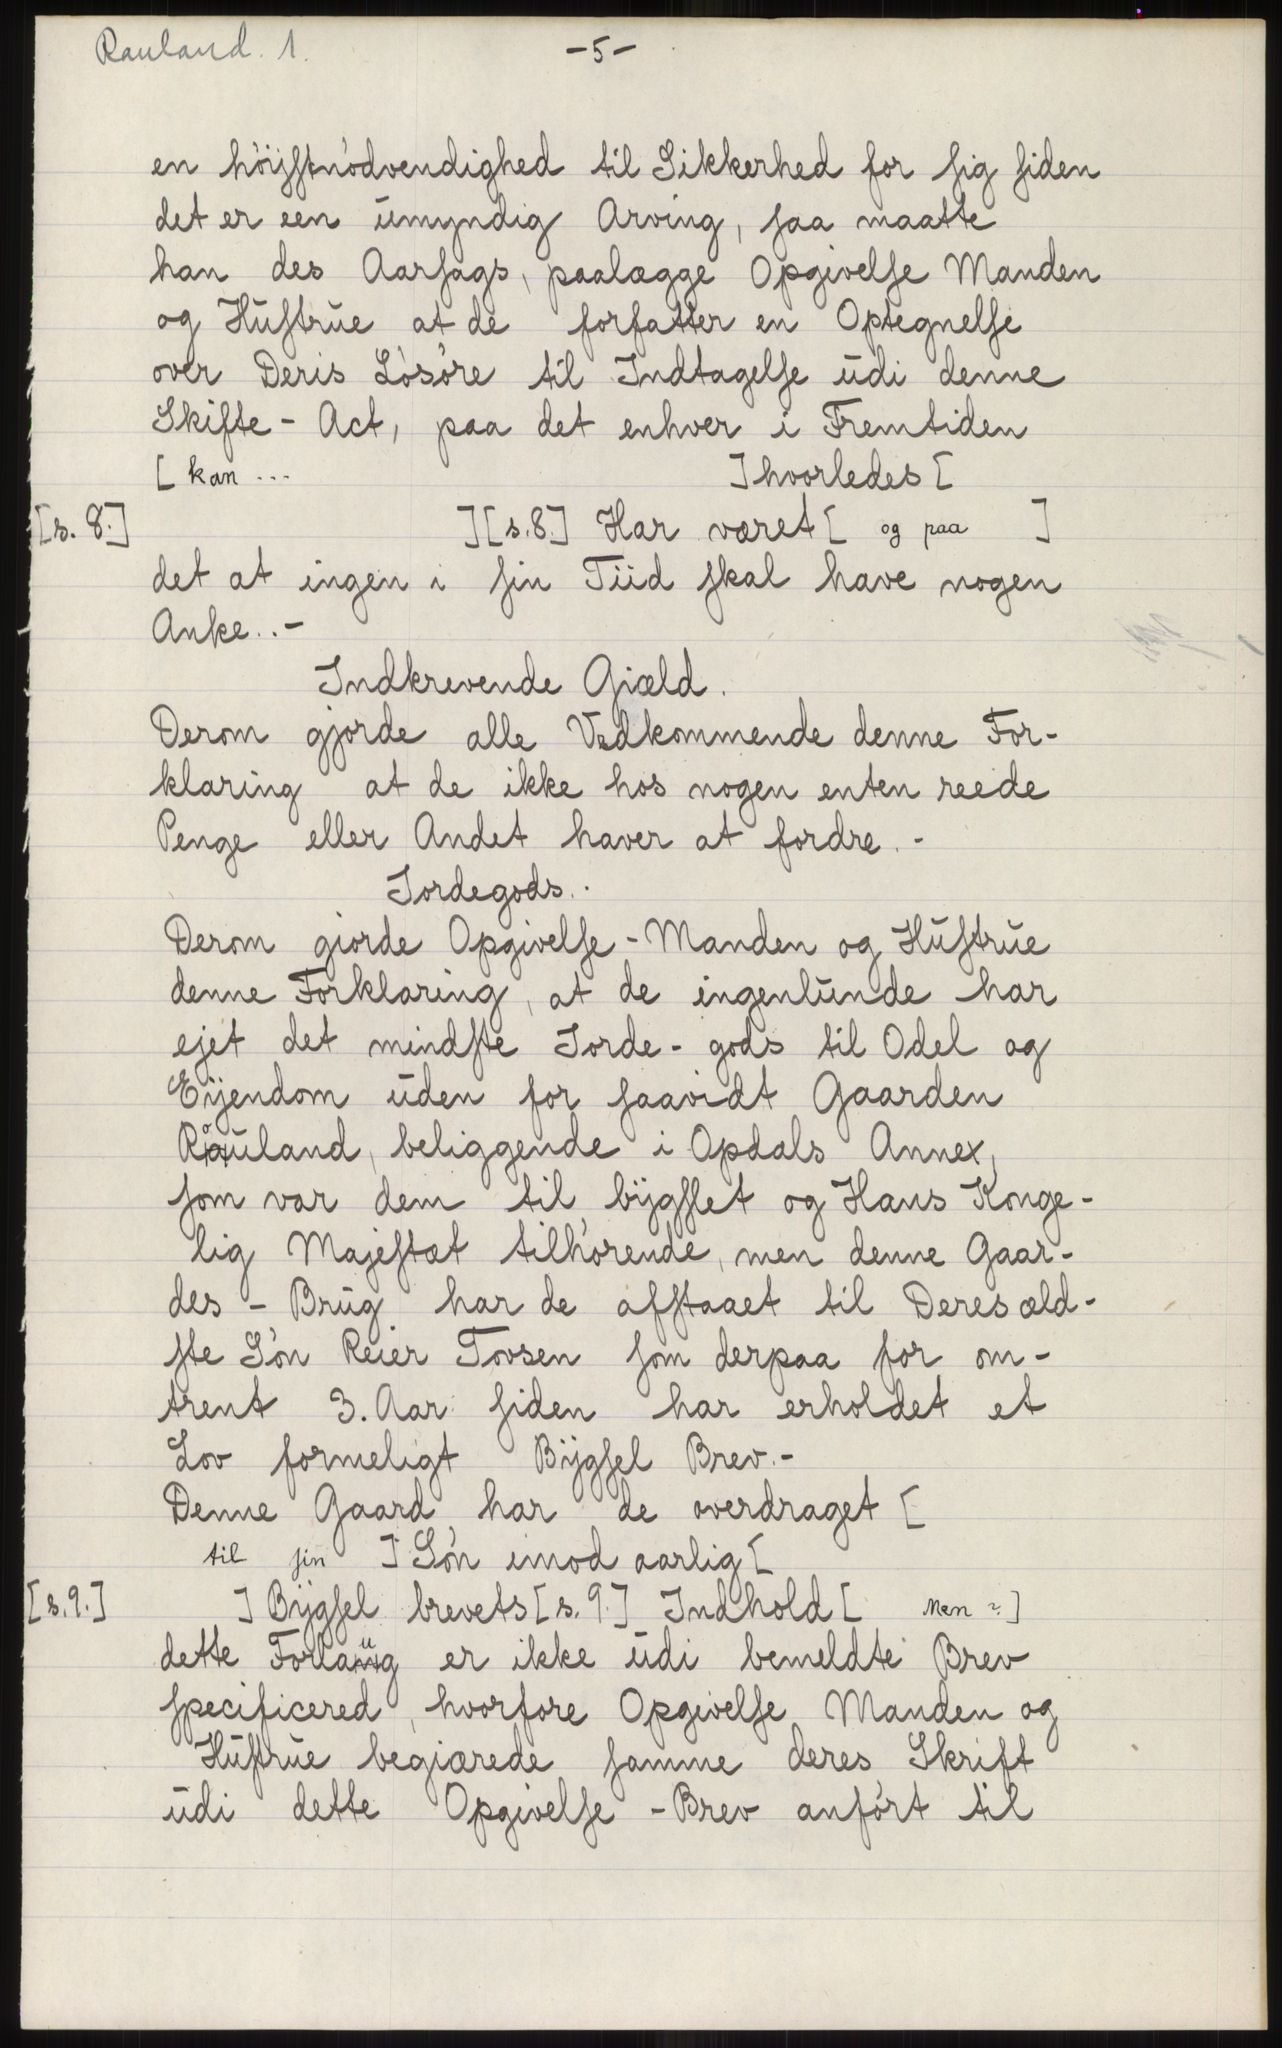 Rauland. 1.
-5-
en höijstnödvendighed til Sikkerhed for sig siden
det er een umyndig Arving, saa maatte
han des Aarsags, paalægge Opgivelse Manden
og Hustrue at de forfatter en Optegnelse
over Deris Lösöre til Indtagelse udi denne
Skifte - Act, paa det enhver i Fremtiden
[ kan ... ] hvorledes [
[s. 8.] ] [s.8.] Har været [ og paa ]
det at ingen i sin Tiid skal have nogen
Anke..-
Indkrevende Giæld.
Derom gjorde alle Vedkommende denne For-
klaring at de ikke hos nogen enten reede
Penge eller Andet haver at fordre.-
Jordegods.
Derom giorde Opgivelse - Manden og Hustrue
denne Forklaring, at de ingenlunde har
ejet det mindste Jorde- gods til Odel og
Eijendom uden for saavidt Gaarden
Råuland, beliggende i Opdals Annex,
som var dem til bijgslet og Hans Konge-
lig Majestæt tilhörende, men denne Gaar-
des - Brug har de afstaaet til Deres æld-
ste Sön Reier Tovsen som derpaa for om-
trent 3. Aar siden har erholdet et
Lov formeligt Bijgsel Brev.-
Denne Gaard har de overdraget [
til sin ] Sön imod aarlig [
[s.9.] ] Bijgsel brevets [s. 9.] Indhold [ Men ? ]
dette Forlaug er ikke udi bemeldte Brev
specificered, hvorfore Opgivelse Manden og
Hustrue begiærede samme deres Skrift
udi dette Opgivelse - Brev anfört til